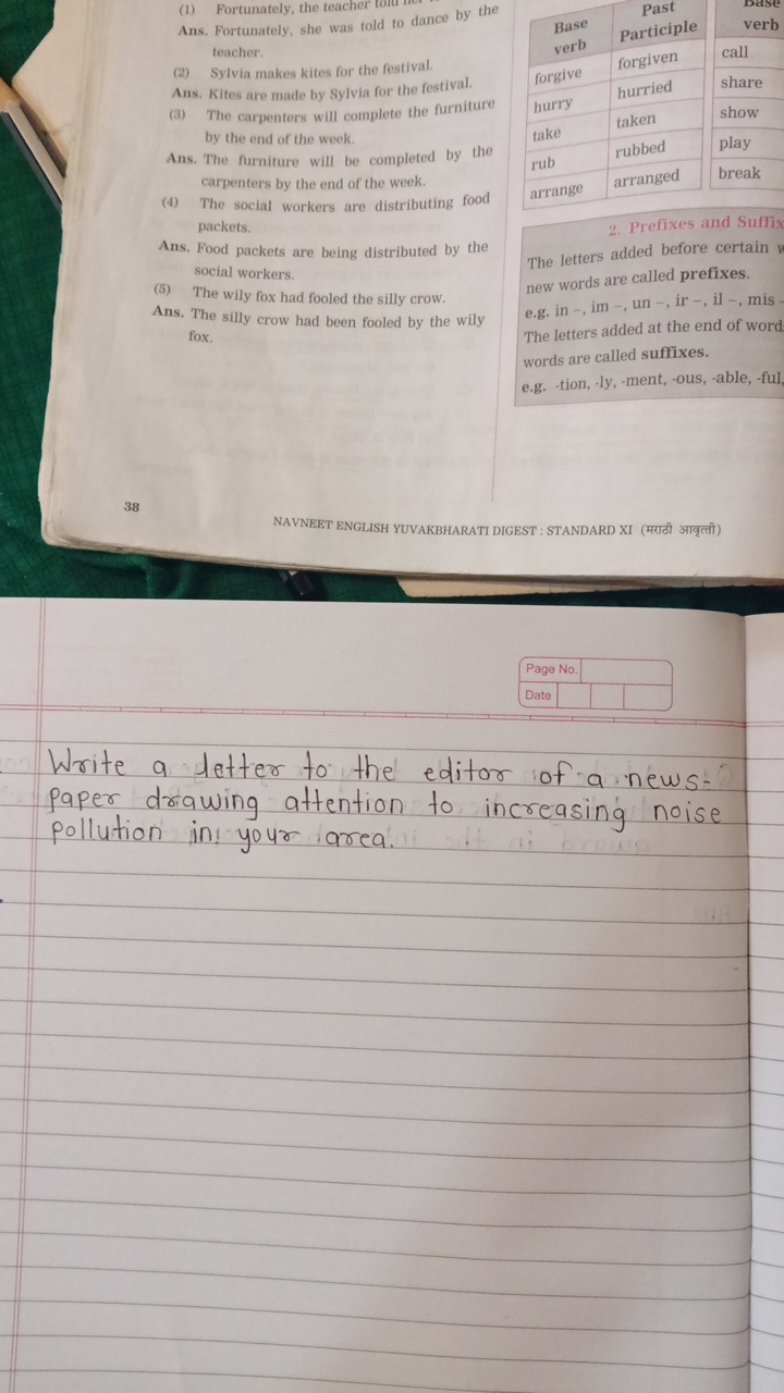 (1) Fortunately, the teacher told
Ans. Fortunately, she was told to dance by the
teacher.
(2) Sylvia makes kites for the festival.
Ans. Kites are made by Sylvia for the festival.
(3) The carpenters will complete the furniture
by the end of the week.
Ans. The furniture will be completed by the
carpenters by the end of the week.
(4) The social workers are distributing food
packets.
Ans. Food packets are being distributed by the
social workers.
(5) The wily fox had fooled the silly crow.
Ans. The silly crow had been fooled by the wily
fox.
Base verb Past Participle
forgive forgiven
hurry hurried
take taken
rub rubbed
arrange arranged
Base verb
call
share
show
play
break
2. Prefixes and Suffix
The letters added before certain
new words are called prefixes.
e.g. in –, im –, un –, ir –, il –, mis -
The letters added at the end of word
words are called suffixes.
e.g. -tion, -ly, -ment, -ous, -able, -ful,
38
NAVNEET ENGLISH YUVAKBHARATI DIGEST : STANDARD XI (मराठी आवृत्ती)
Page No.
Date
Write a letter to the editor of a news-
paper drawing attention to increasing noise
pollution in your area.